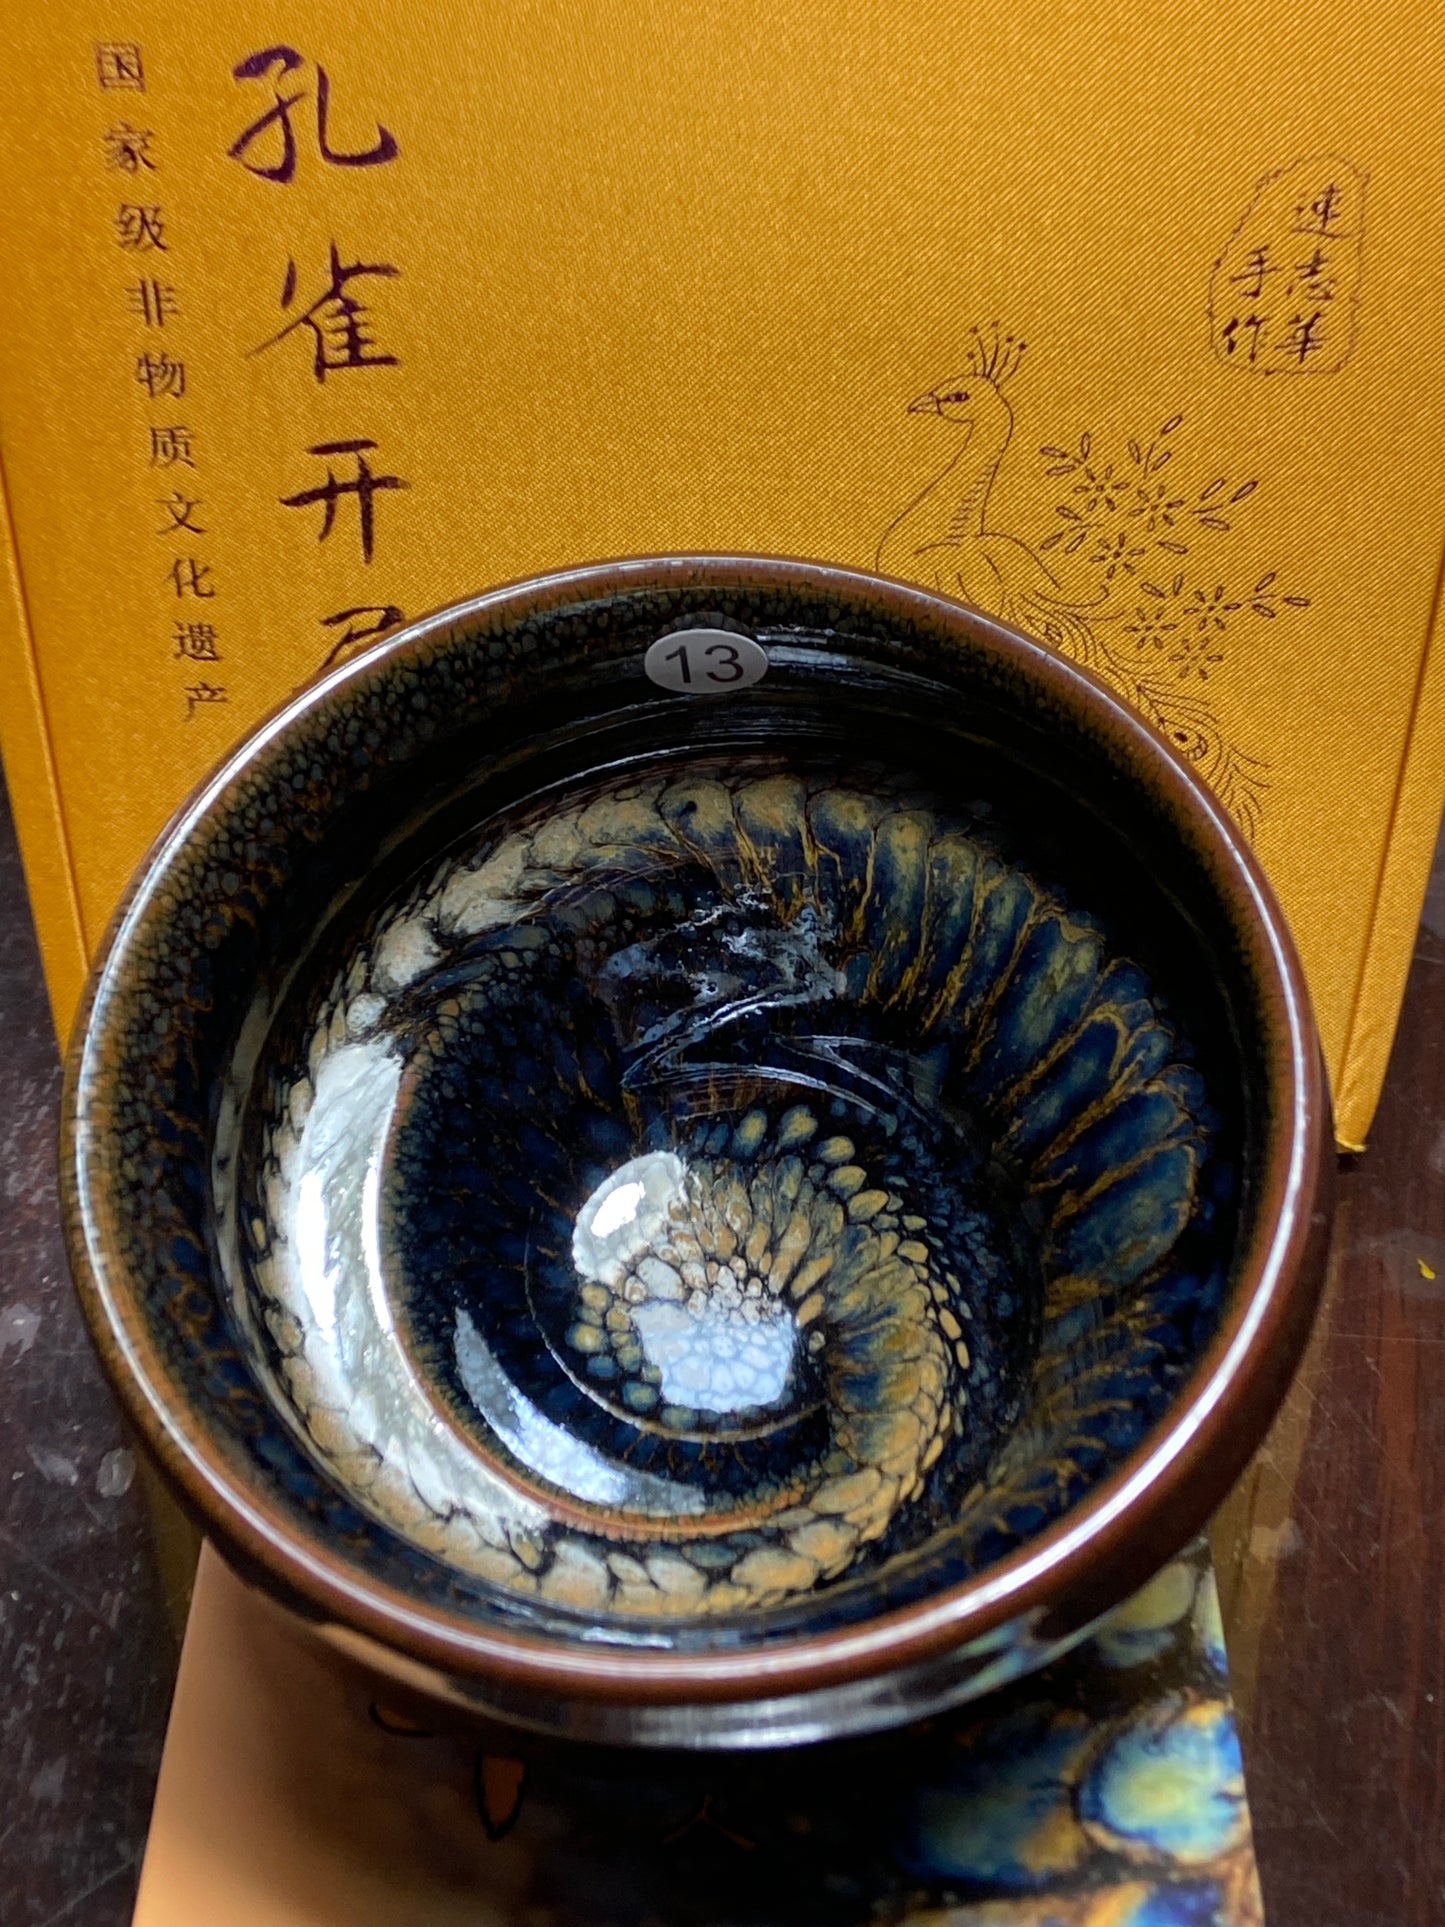 連志華
手作
孔雀开
国家级非物质文化遗产
13